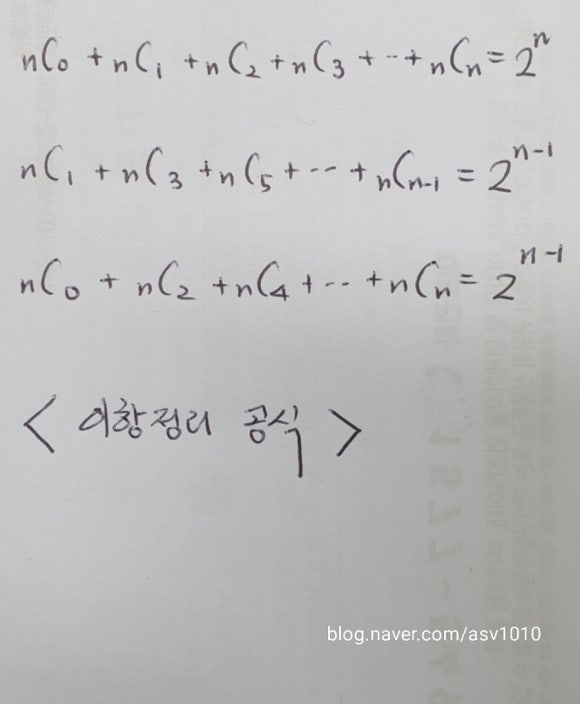 nC₀ + nC₁ + nC₂ + nC₃ + ‥ + nCn = 2ⁿ
nC₁ + nC₃ + nC₅ + ‥ + nCn-1 = 2ⁿ⁻¹
nC₀ + nC₂ + nC₄ + ‥ + nCn = 2ⁿ⁻¹
< 이항정리 공식 >
blog.naver.com/asv1010